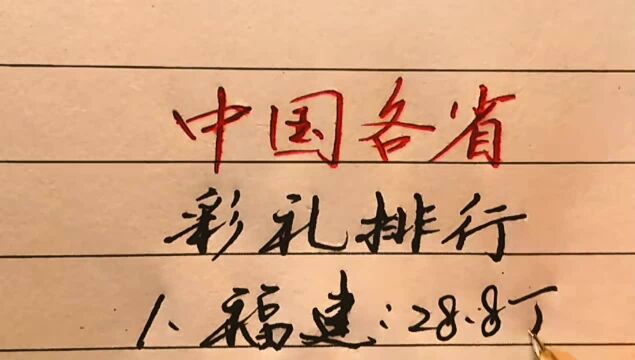 中国各省
彩礼排行
1、福建:28.8